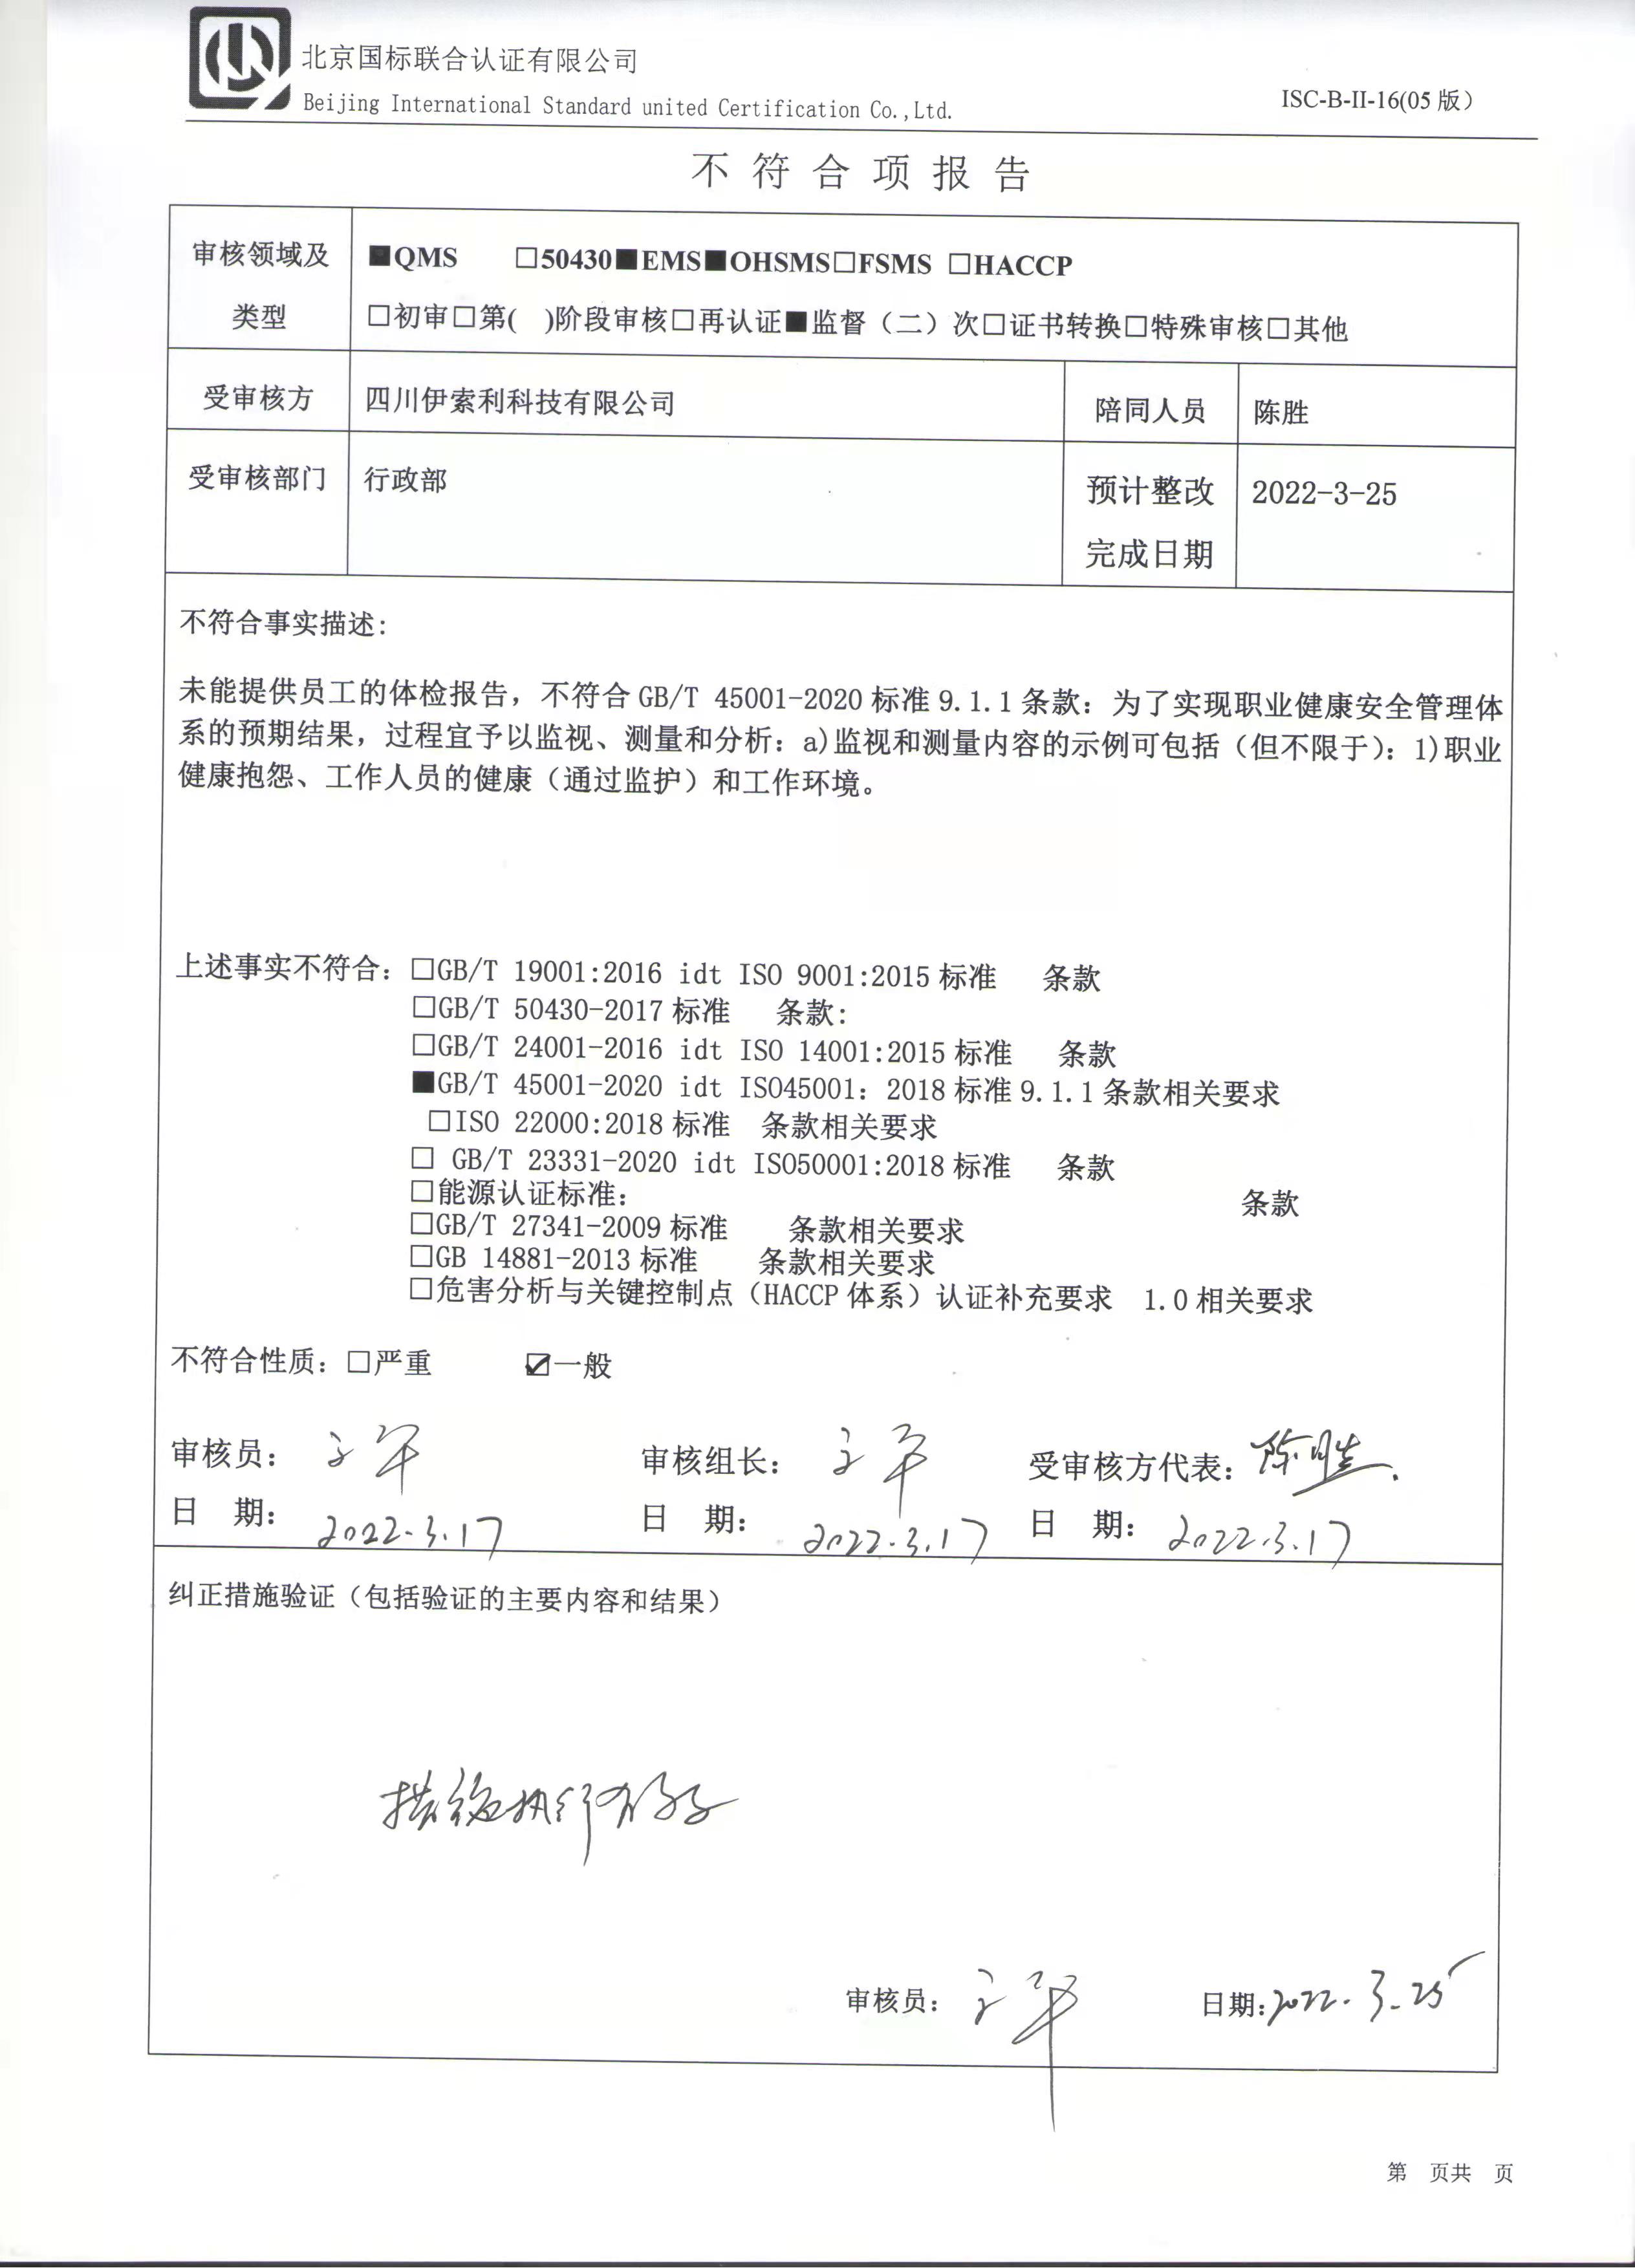 北京国标联合认证有限公司
Beijing International Standard united Certification Co.,Ltd.
ISC-B-II-16(05 版)
不 符 合 项 报 告
审核领域及
类型
■QMS □50430■EMS■OHSMS□FSMS □HACCP
□初审□第( )阶段审核□再认证■监督（二）次□证书转换□特殊审核□其他
受审核方
四川伊索利科技有限公司
陪同人员
陈胜
受审核部门
行政部
预计整改
完成日期
2022-3-25
不符合事实描述:
未能提供员工的体检报告，不符合 GB/T 45001-2020 标准 9.1.1 条款：为了实现职业健康安全管理体
系的预期结果，过程宜予以监视、测量和分析：a)监视和测量内容的示例可包括（但不限于）：1)职业
健康抱怨、工作人员的健康（通过监护）和工作环境。
上述事实不符合：□GB/T 19001:2016 idt ISO 9001:2015 标准 条款
□GB/T 50430-2017 标准 条款:
□GB/T 24001-2016 idt ISO 14001:2015 标准 条款
■GB/T 45001-2020 idt ISO45001：2018 标准 9.1.1 条款相关要求
□ISO 22000:2018 标准 条款相关要求
□ GB/T 23331-2020 idt ISO50001:2018 标准 条款
□能源认证标准： 条款
□GB/T 27341-2009 标准 条款相关要求
□GB 14881-2013 标准 条款相关要求
□危害分析与关键控制点（HACCP 体系）认证补充要求 1.0 相关要求
不符合性质：□严重 ☑一般
审核员： 审核组长： 受审核方代表：陈胜
日 期：2022.3.17 日 期：2022.3.17 日 期：2022.3.17
纠正措施验证（包括验证的主要内容和结果）
措施执行有效
审核员： 日期:2022.3.25
第 页共 页